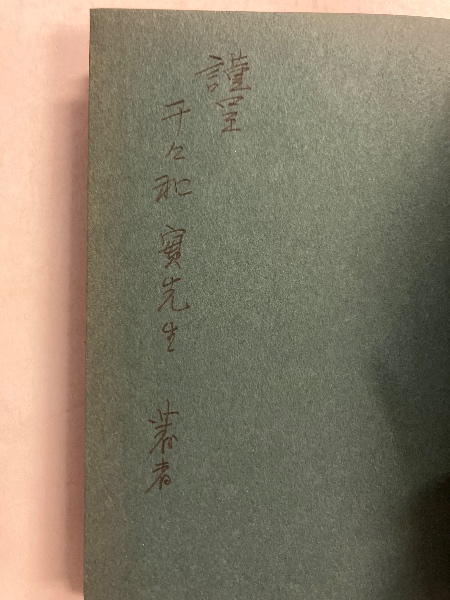 謹呈
千々和 實先生 著者